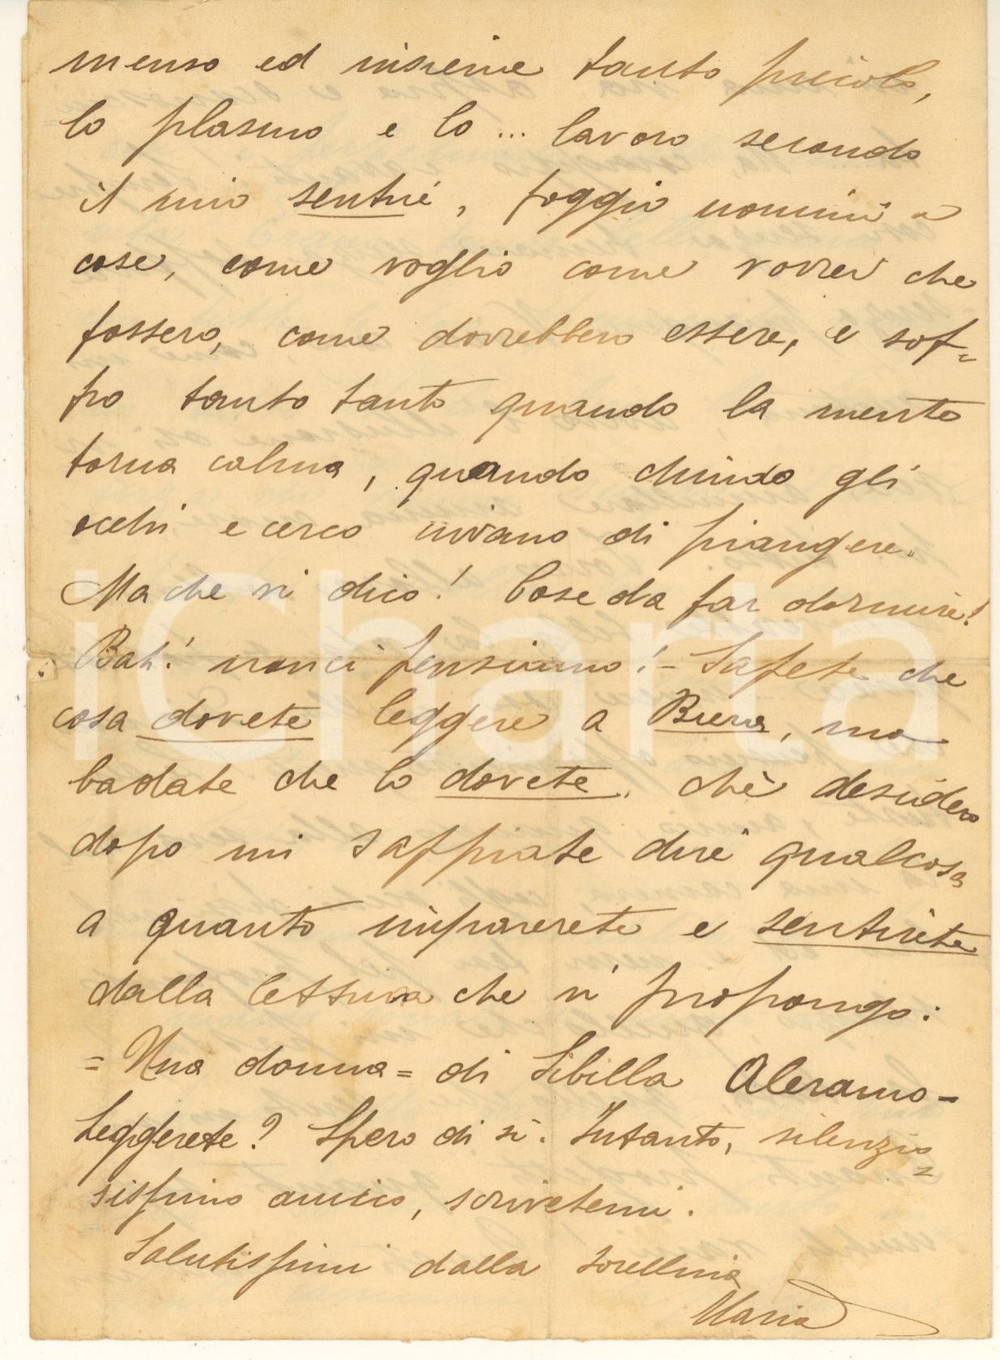 menso ed insieme tanto piccolo,
lo plasmo e lo ... lavoro secondo
il mio sentire, foggio uomini e
cose, come voglio come vorrei che
fossero, come dovrebbero essere, e sof=
fro tanto tanto quando la mente
torna calma, quando chiudo gli
occhi e cerco invano di piangere.
Ma che vi dico! Cose da far dormire!
Bah! non ci pensiamo! - Sapete che
cosa dovete leggere a Brera, ma
badate che lo dovete. chè desidero
dopo mi sappiate dire qualcosa
a quanto imparerete e sentirete
dalla lettura che vi propongo:
= Una donna = di Sibilla Aleramo -
Leggerete? Spero di sì. Intanto, silenzio=
sissimo amico, scrivetemi.
Salutissimi dalla sorellina
Maria
iCharta